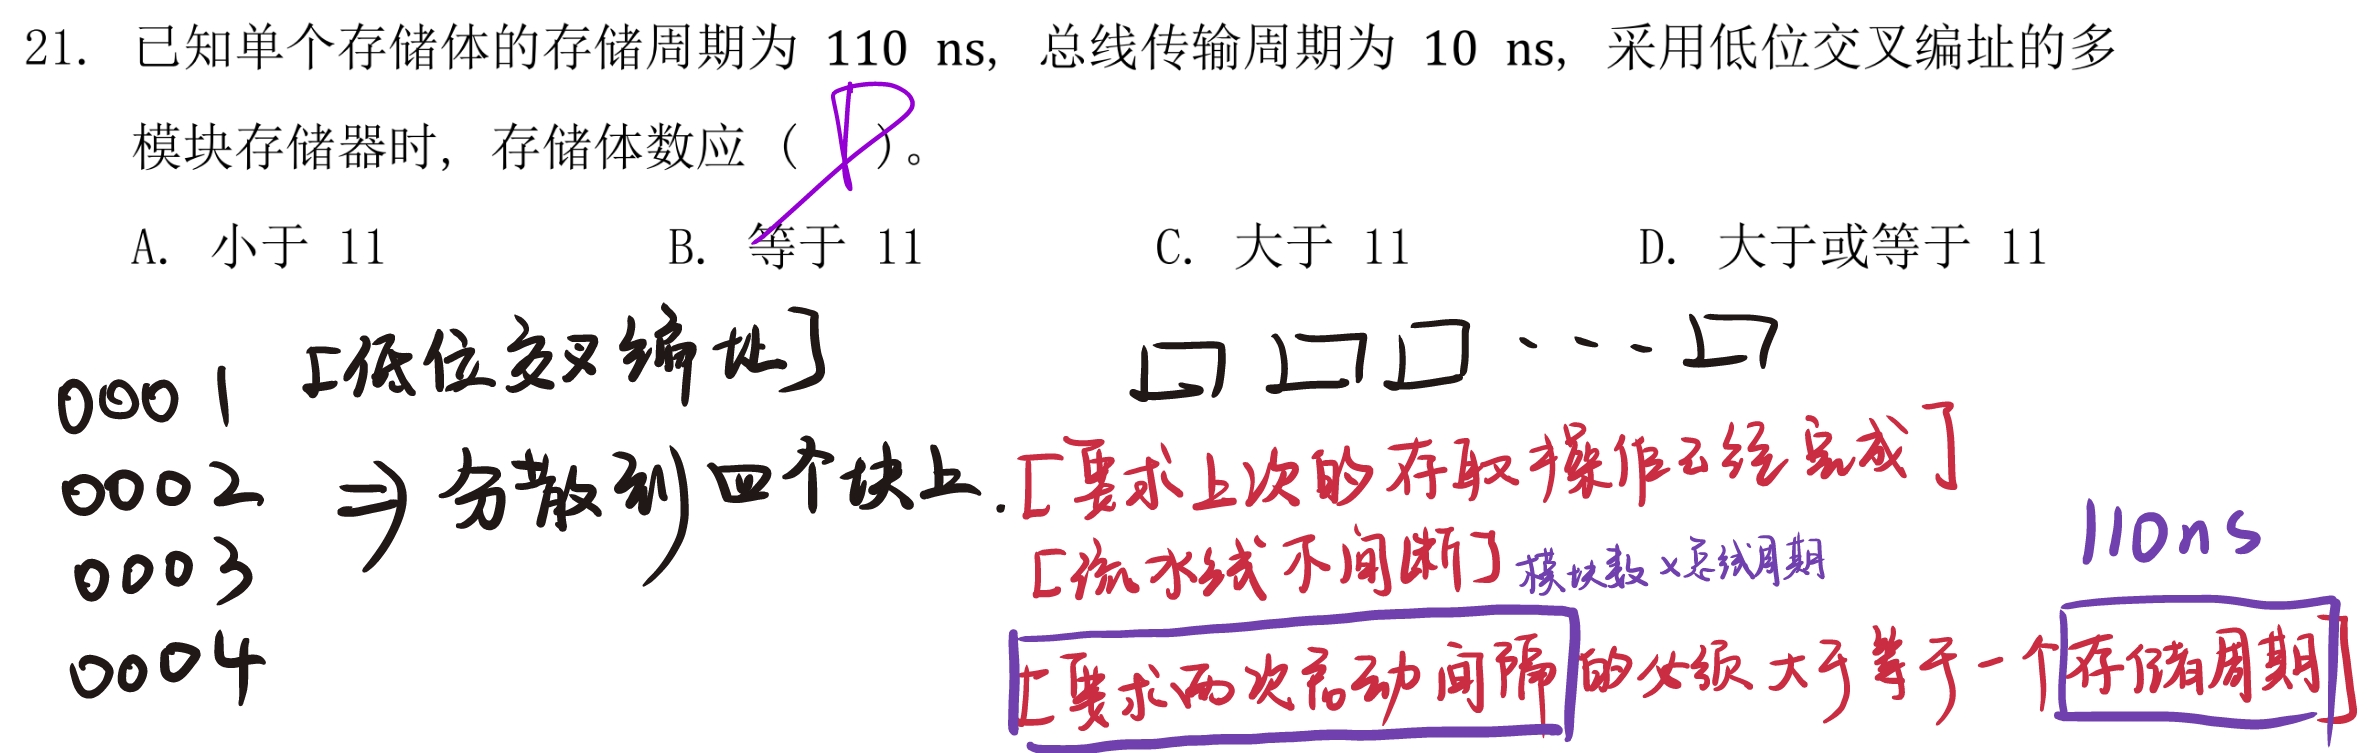 21. 已知单个存储体的存储周期为 110 ns, 总线传输周期为 10 ns, 采用低位交叉编址的多
模块存储器时, 存储体数应 ( D )。
A. 小于 11 B. 等于 11 C. 大于 11 D. 大于或等于 11
[低位交叉编址]
0001
0002 ⇒ 分散到四个块上.
0003
0004
[要求上次的存取操作已经完成]
[流水线不间断] 模块数×总线周期
110ns
[要求两次启动间隔的必须大于等于一个存储周期]